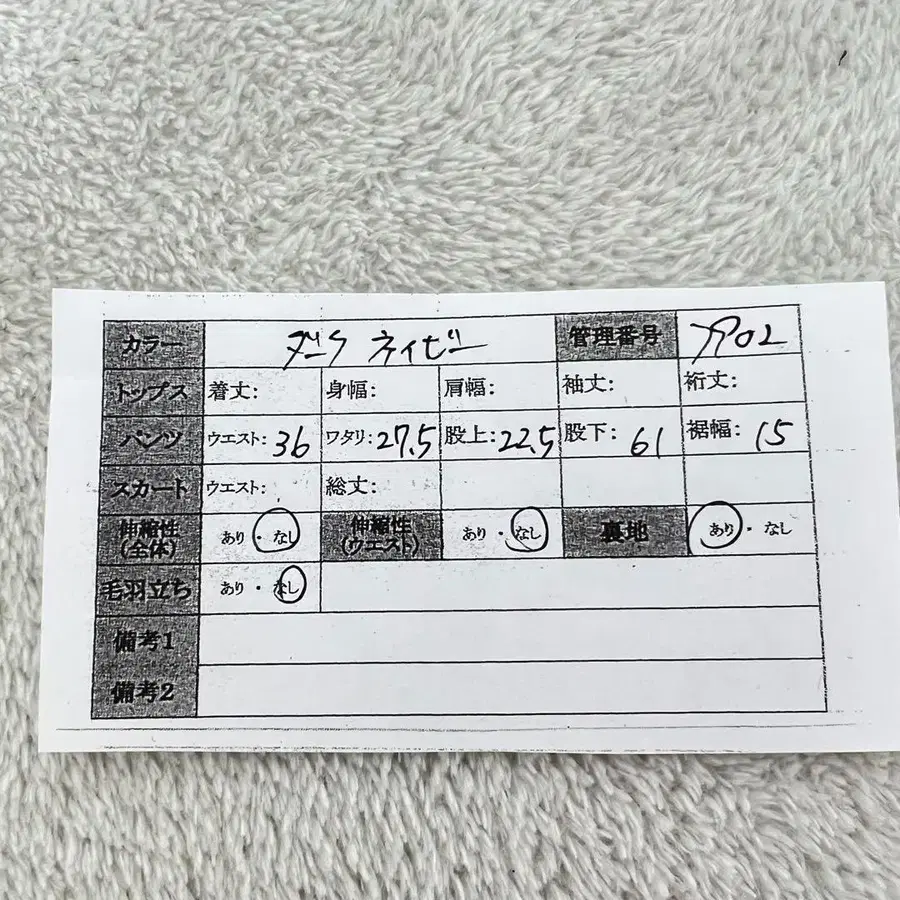 カラー ダークネイビー 管理番号
トップス 着丈: 身幅: 肩幅: 袖丈: 裄丈:
パンツ ウエスト: 36 ワタリ: 27.5 股上: 22.5 股下: 61 裾幅: 15
スカート ウエスト: 総丈:
伸縮性(全体) あり・なし 伸縮性(ウエスト) あり・なし 裏地 あり・なし
毛羽立ち あり・なし
備考1
備考2